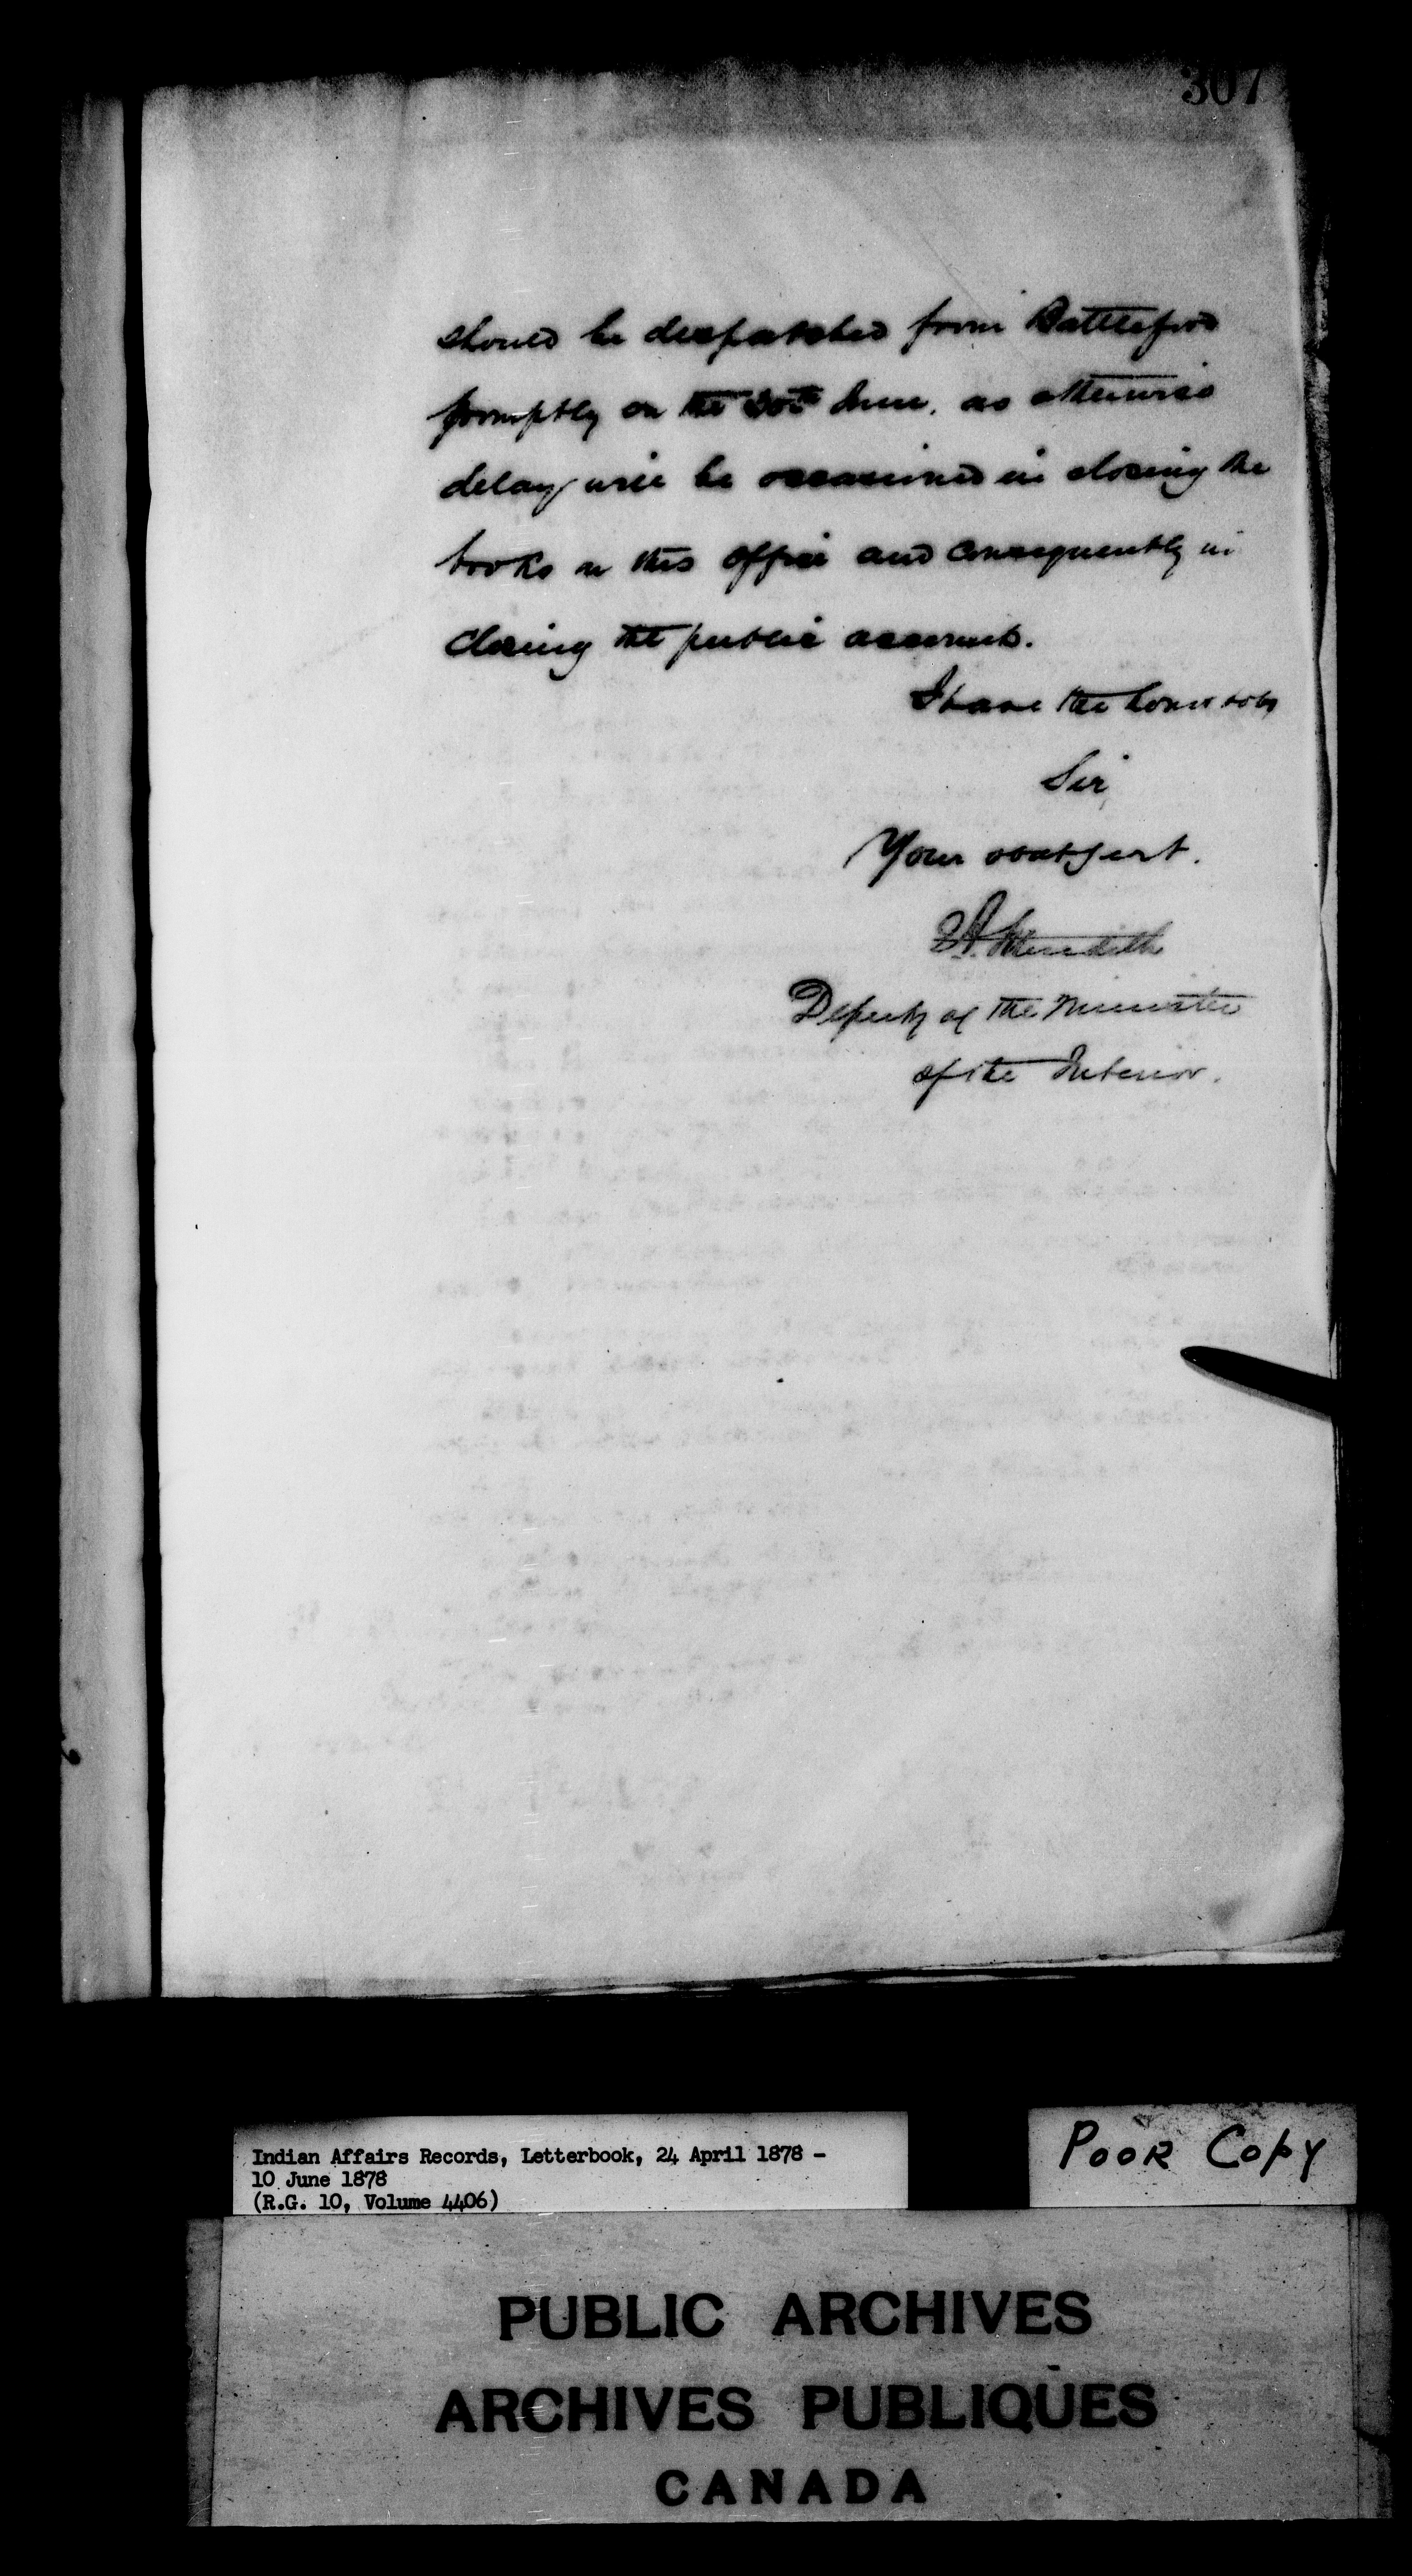 307
should be despatched from Battleford
promptly on the 30th June, as otherwise
delay will be occasioned in closing the
books in this office and consequently in
closing the public accounts.
I have the honor to be
Sir
Your obdt servt.
E A Meredith
Deputy of the Minister
of the Interior.
Indian Affairs Records, Letterbook, 24 April 1878 -
10 June 1878
(R.G. 10, Volume 4406)
POOR COPY
PUBLIC ARCHIVES
ARCHIVES PUBLIQUES
CANADA